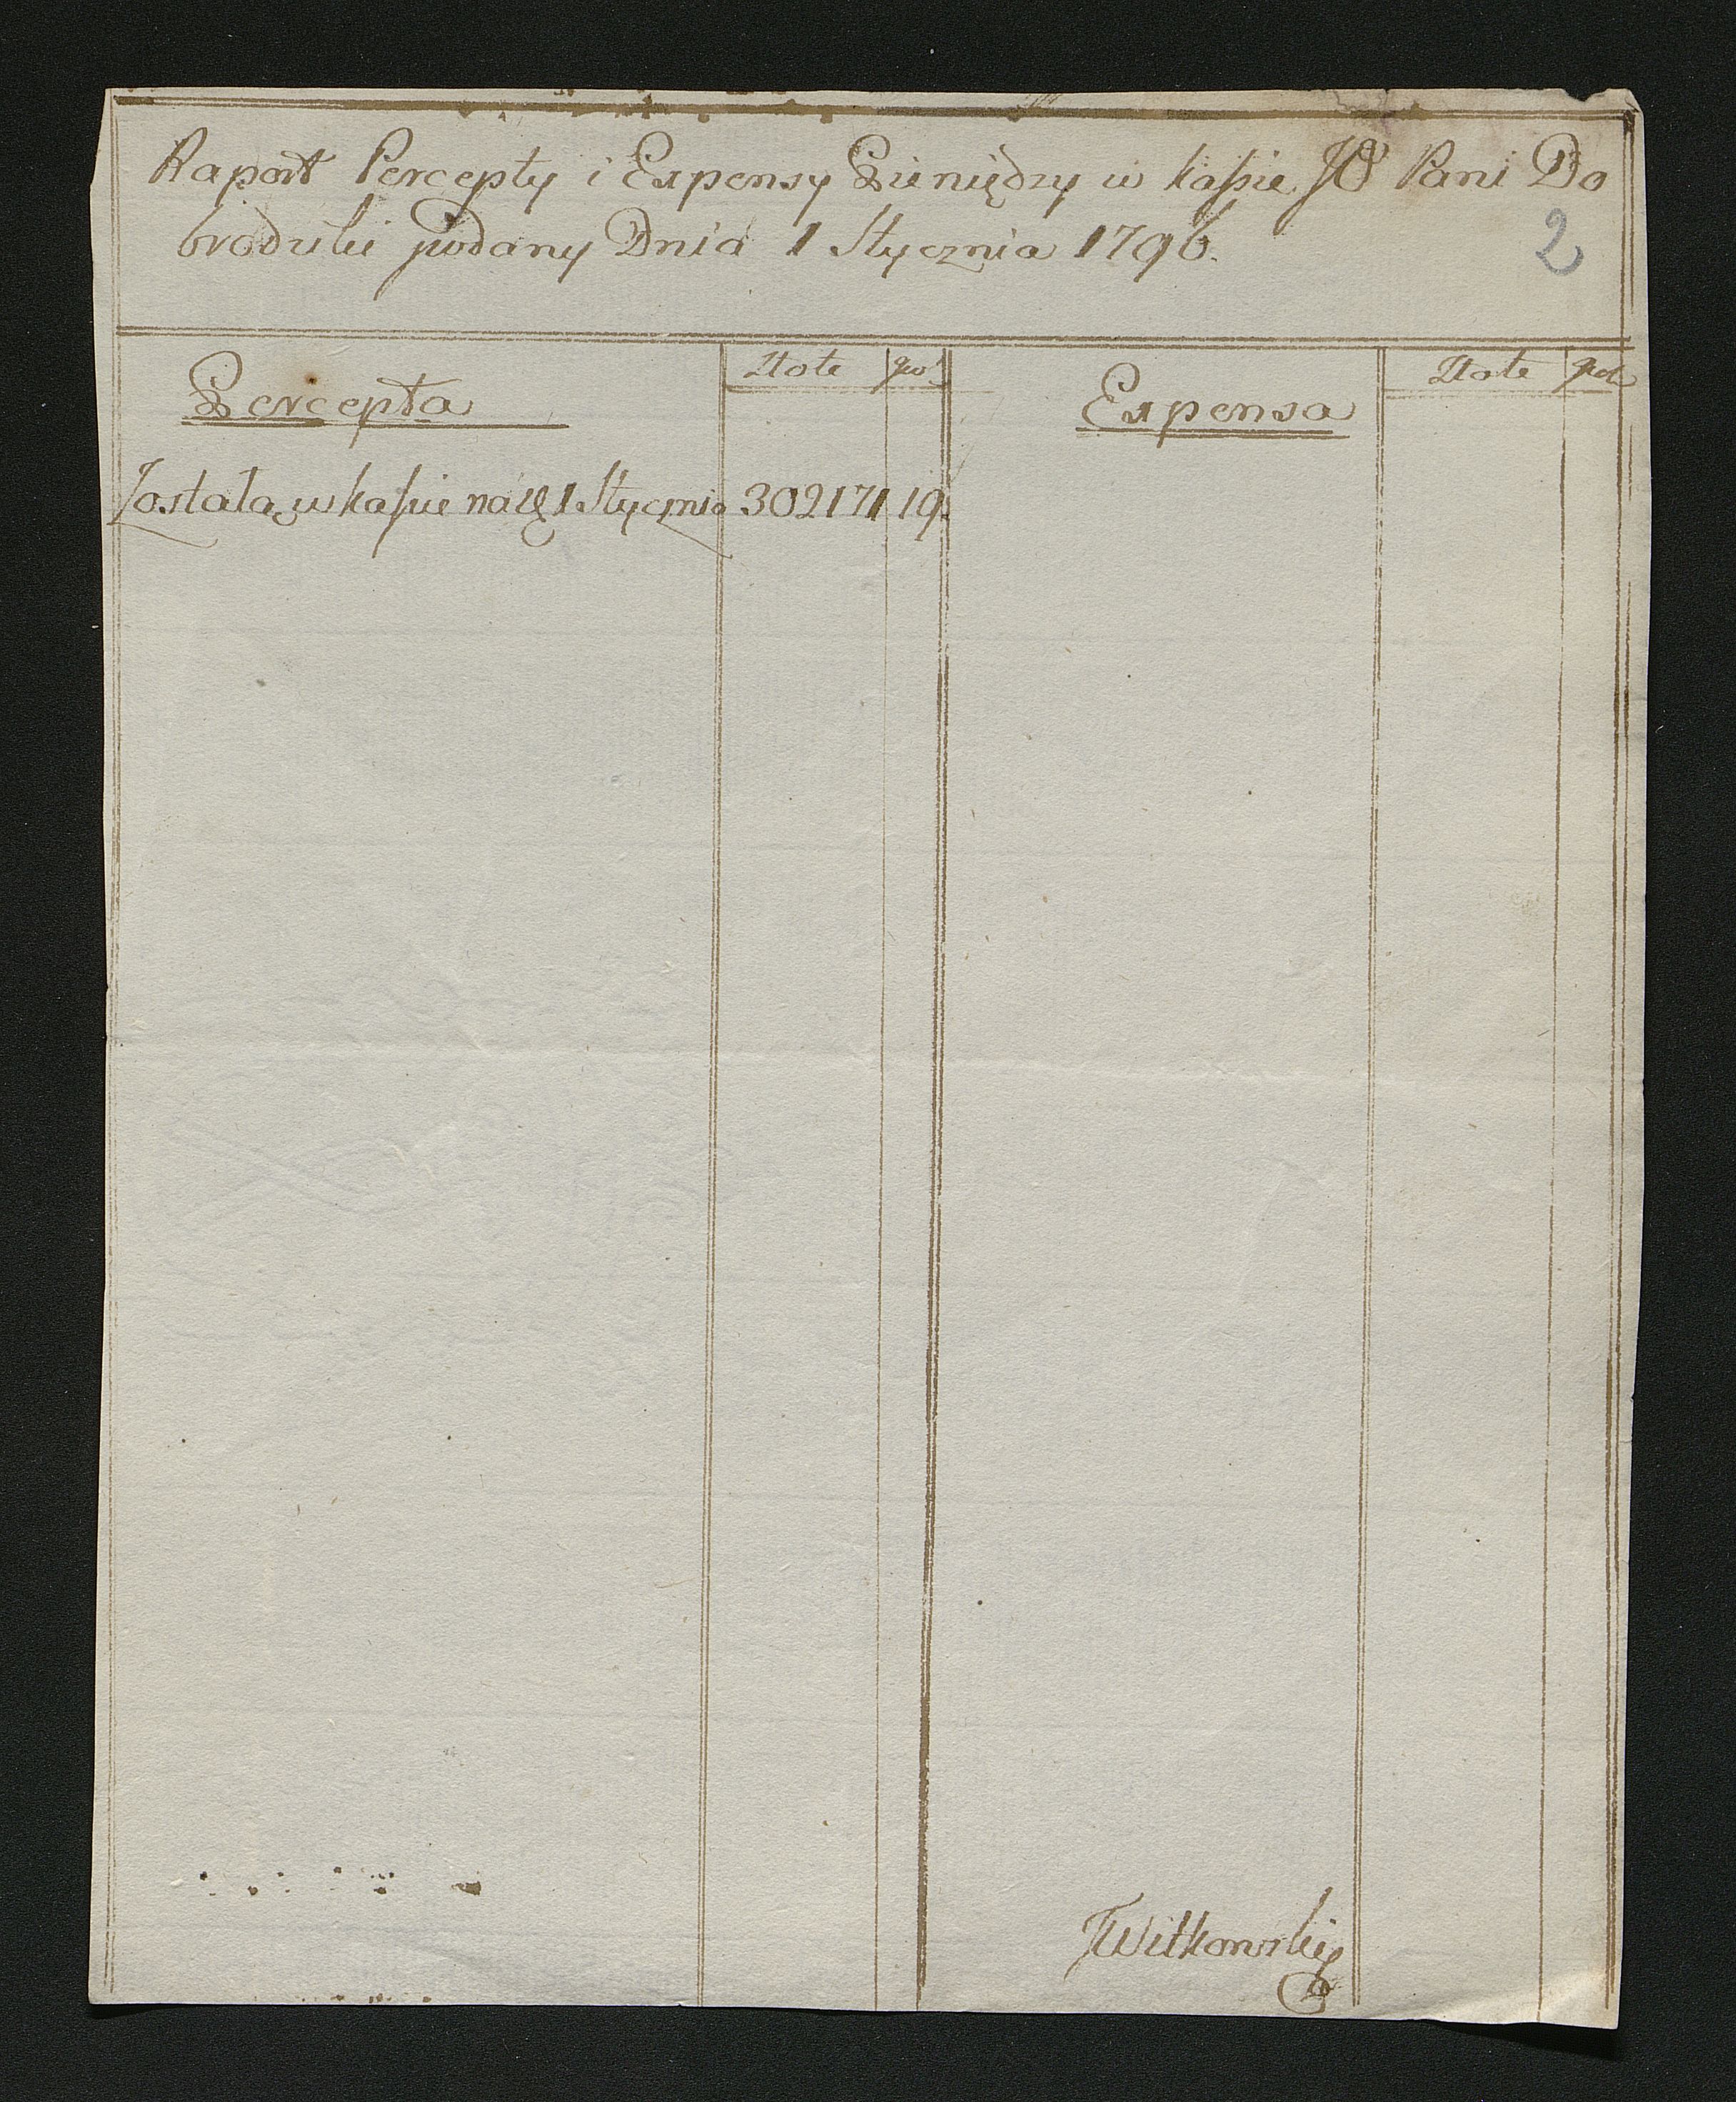 Raport Percepty i Expensy Pieniędzy w kaſsie JO Pani Do
brodziki podany Dnia 1 Stycznia 1796.
2
Percepta
Złote
gro:
Expensa
Złote
gro:
Została w kaſsie na d 1 Stycznia
302171
19.
JWitkowski